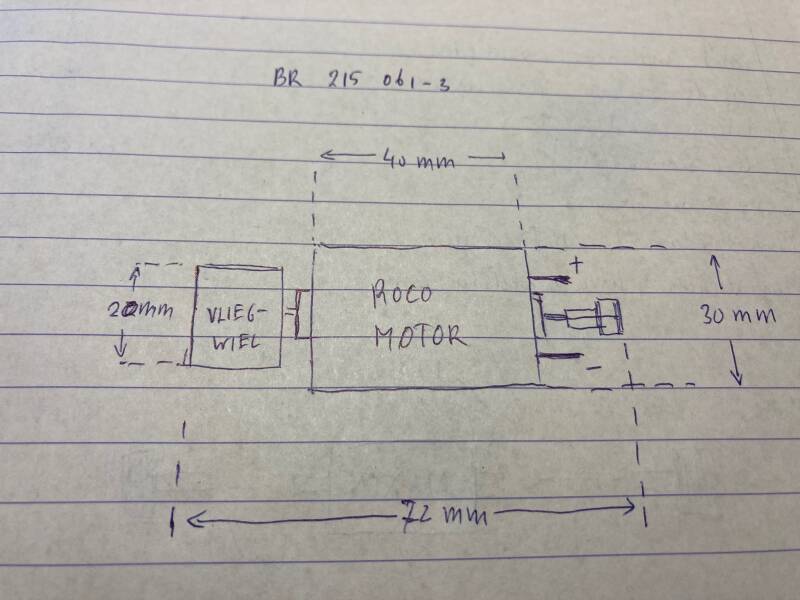 BR 215 061-3
40 mm
+
20mm
VLIEG-
WIEL
ROCO
MOTOR
30 mm
-
72 mm